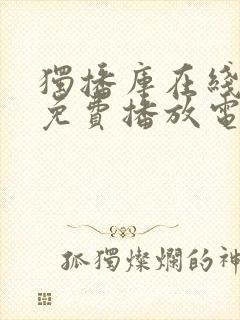 獨播庫在綫
免費播放電
孤獨燦爛的神